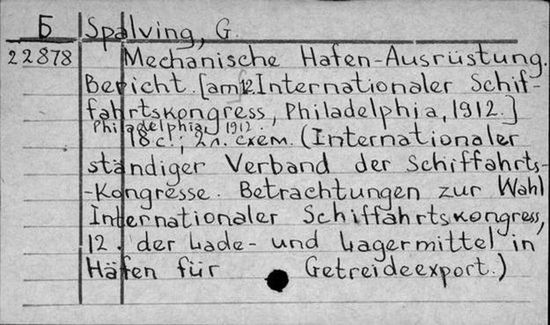 Б Spalving, G.
22878 Mechanische Hafen-Ausrüstung.
Bericht. [am 12. Internationaler Schif-
fahrtskongress, Philadelphia, 1912.]
Philadelphia, 1912.
18 с.; 2 л. схем. (Internationaler
ständiger Verband der Schiffahrts-
-Kongresse. Betrachtungen zur Wahl
Internationaler Schiffahrtskongress,
12. der Lade- und Lagermittel in
Häfen für Getreideexport.)